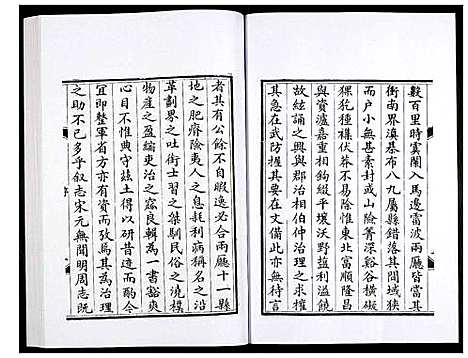 數百里時虞闌入馬邊雷波兩廳皆當其
衝南界滇綦布八九屬縣錯落其間域狹
而戶小無甚素封或山險箐深谿谷橫礙
猓狁種襍伏莽不易除惟東北富順隆昌
與資瀘嘉重相鉤綴平壤沃野鹽利溢饒
故絃誦之興與郡治相伯仲治理之實榷
其急在武防握其要在文備此無俟言
者其有公餘不自暇逸必合兩廳十一縣
地之肥瘠險夷人之息耗利病稱名之沿
革劃界之吐銜士習之桀馴民俗之澆樸
物産之盈絀吏治之窳良輯為一書豁爽
心目不惟典守玆土得以研昔造而酌今
宜即整軍省方亦有資而攸往其為治理
之助不已多乎叙志宋元無聞明周志既
序